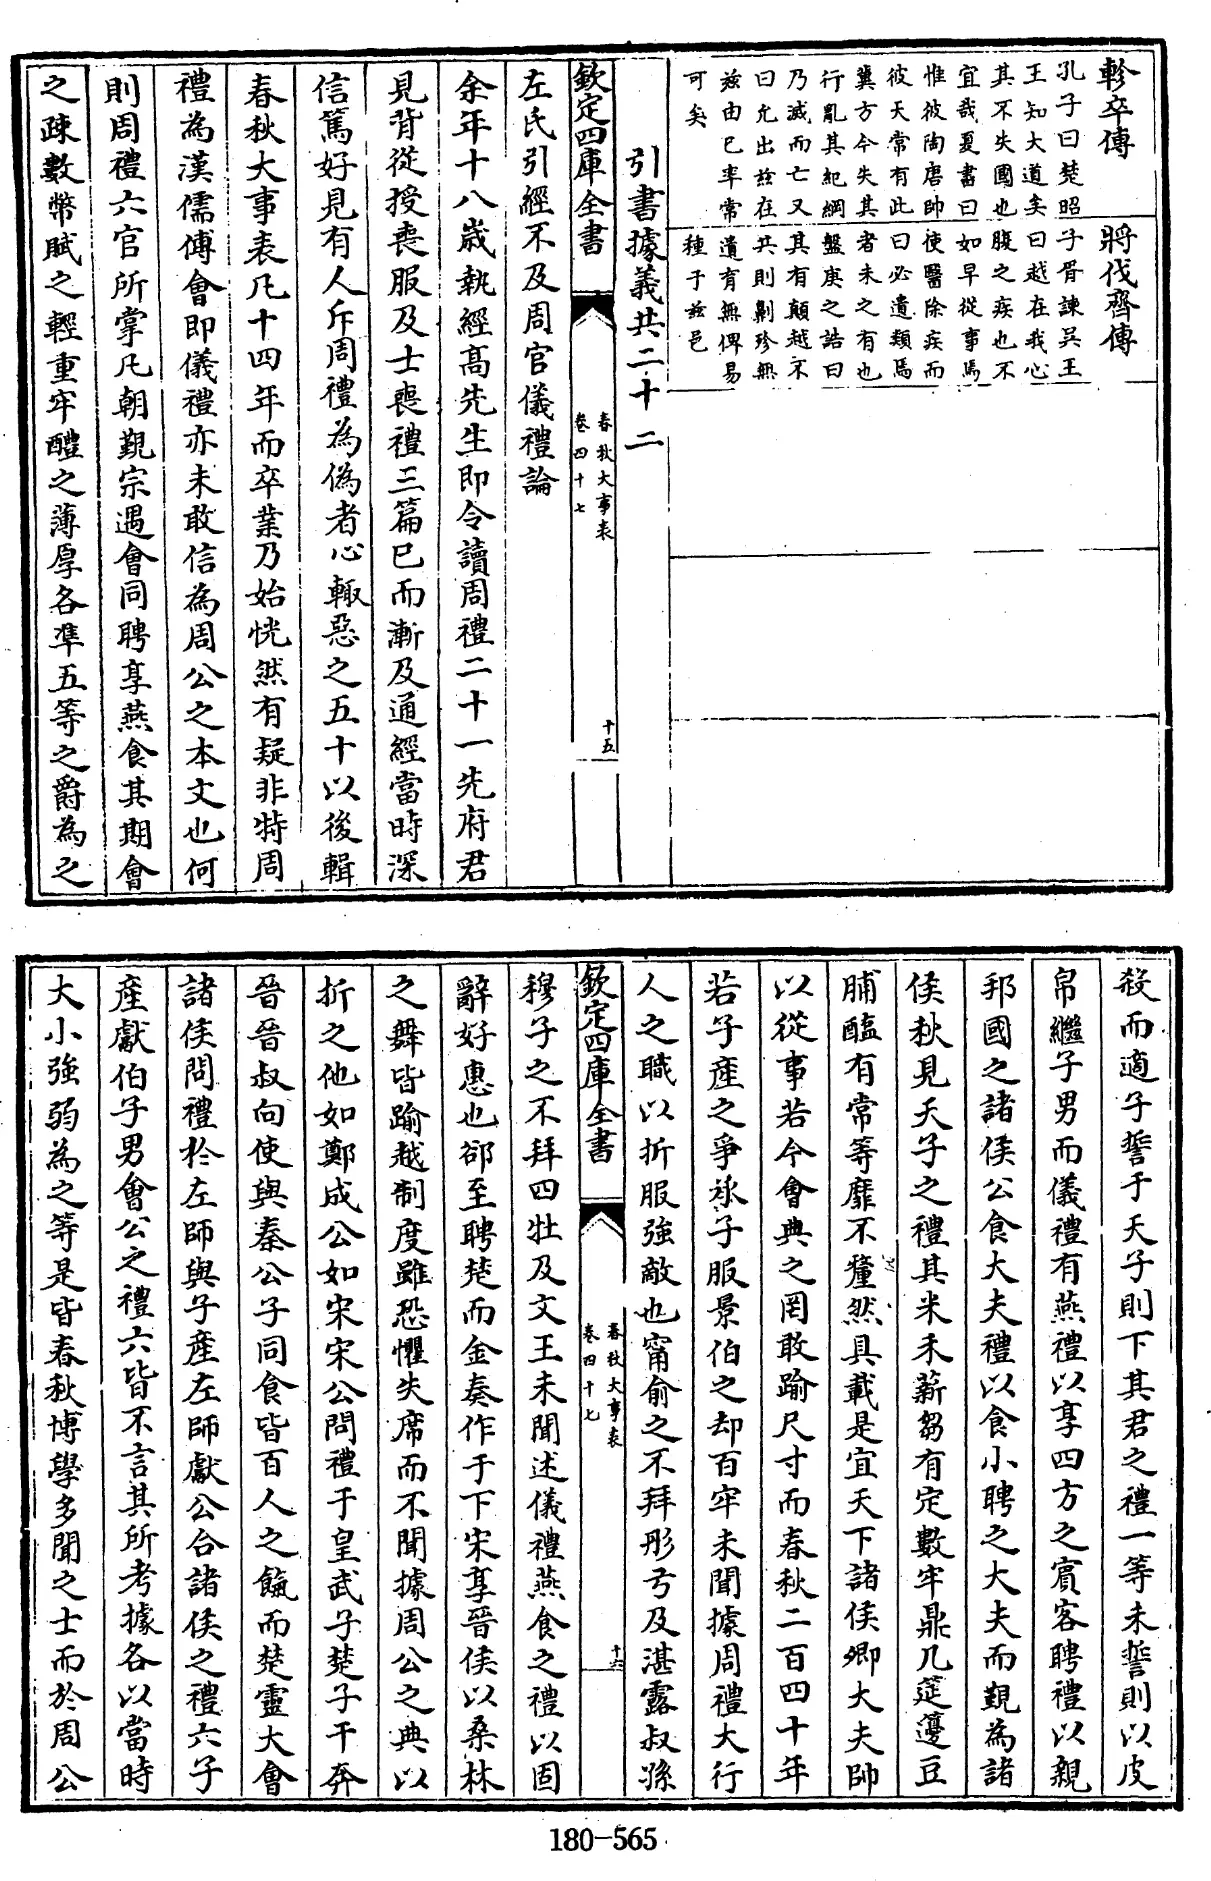 軫卒傳
孔子曰楚昭
王知大道矣
其不失國也
宜哉夏書曰
惟彼陶唐帥
彼天常有此
冀方今失其
行亂其紀綱
乃滅而亡又
曰允出兹在
兹由已率常
可矣
將伐齊傳
子胥諫吳王
曰越在我心
腹之疾也不
如早從事焉
使醫除疾而
曰必遺類焉
者未之有也
盤庚之誥曰
其有顛越不
共則劓殄無
遺育無俾易
種于兹邑
引書據義共二十二
欽定四庫全書
春秋大事表
卷四十七
十五
左氏引經不及周官儀禮論
余年十八歲執經髙先生即令讀周禮二十一先府君
見背從授喪服及士喪禮三篇已而漸及通經當時深
信篤好見有人斥周禮為偽者心輙惡之五十以後輯
春秋大事表凡十四年而卒業乃始恍然有疑非特周
禮為漢儒傅會即儀禮亦未敢信為周公之本文也何
則周禮六官所掌凡朝覲宗遇會同聘享燕食其期會
之疎數幣賦之輕重牢醴之薄厚各凖五等之爵為之
殺而適子誓于天子則下其君之禮一等未誓則以皮
帛繼子男而儀禮有燕禮以享四方之賓客聘禮以親
邦國之諸侯公食大夫禮以食小聘之大夫而覲為諸
侯秋見天子之禮其米禾薪芻有定數牢鼎几筵籩豆
脯醢有常等靡不釐然具載是宜天下諸侯卿大夫帥
以從事若今會典之罔敢踰尺寸而春秋二百四十年
若子産之爭承子服景伯之却百牢未聞據周禮大行
人之職以折服強敵也甯俞之不拜彤弓及湛露叔孫
欽定四庫全書
春秋大事表
卷四十七
十六
穆子之不拜四牡及文王未聞述儀禮燕食之禮以固
辭好惠也郤至聘楚而金奏作于下宋享晉侯以桑林
之舞皆踰越制度雖恐懼失席而不聞據周公之典以
折之他如鄭成公如宋宋公問禮于皇武子楚子干奔
晉晉叔向使與秦公子同食皆百人之餼而楚靈大會
諸侯問禮於左師與子產左師獻公合諸侯之禮六子
產獻伯子男會公之禮六皆不言其所考據各以當時
大小強弱為之等是皆春秋博學多聞之士而於周公
180-565